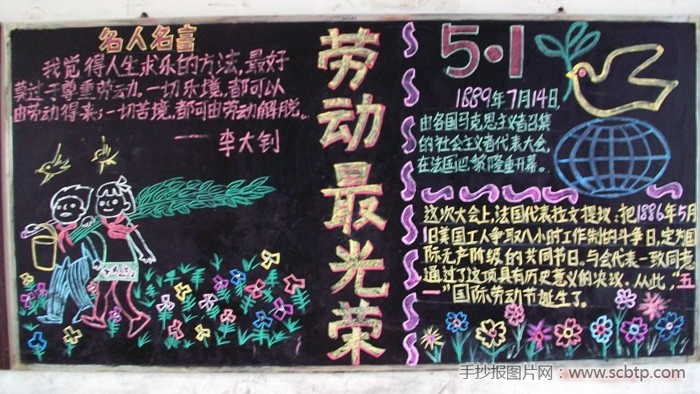 名人名言
我觉得人生求乐的方法,最好
莫过于尊重劳动。一切乐境,都可以
由劳动得来;一切苦境,都可由劳动解脱。
——李大钊
劳动最光荣
5·1
1889年7月14日,
由各国马克思主义者召集
的社会主义者代表大会,
在法国巴黎隆重开幕。
这次大会上,法国代表拉文提议:把1886年5月
1日美国工人争取八小时工作制的斗争日,定为国
际无产阶级的共同节日。与会代表一致同意
通过了这项具有历史意义的决议。从此,“五
一”国际劳动节诞生了。
手抄报图片网:www.scbtp.com